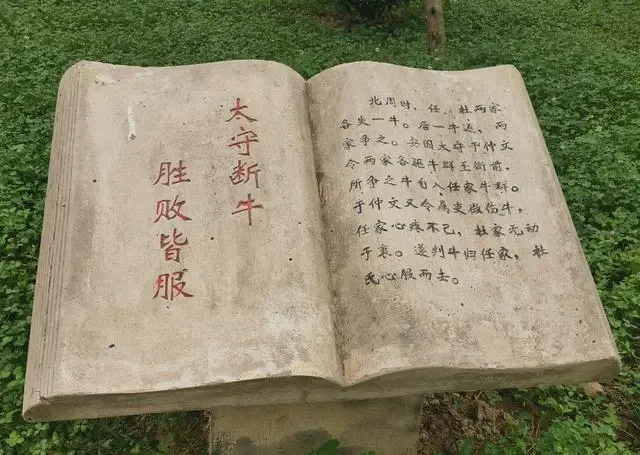 太守断牛
胜败皆服
北周时，任、杜两家
各失一牛。后一牛返，两
家争之。安固太守于仲文
令两家各驱牛群至衙前。
所争之牛自入任家牛群。
于仲文又令属吏微伤牛，
任家心疼不已，杜家无动
于衷。遂判牛归任家，杜
氏心服而去。